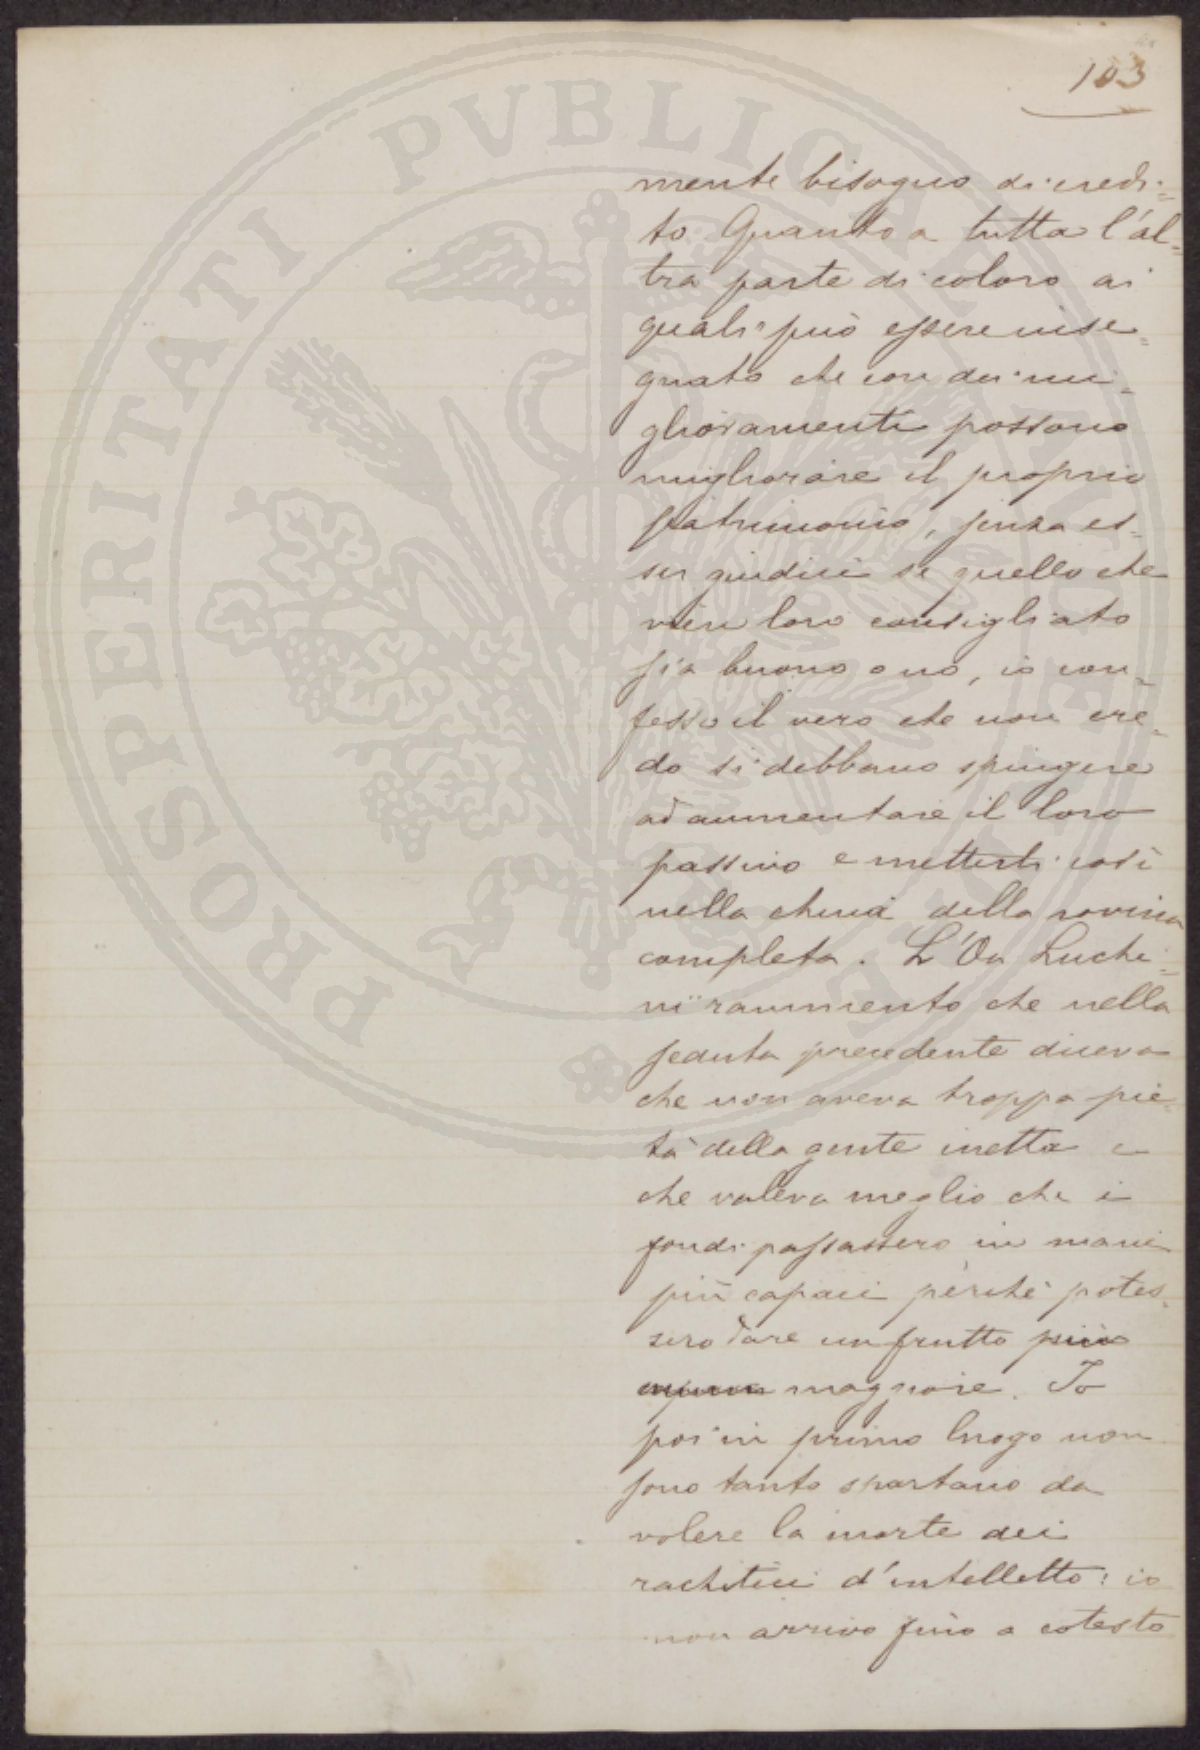 103
mente bisogno di credi=
to. Quanto a tutta l'al=
tra parte di coloro ai
quali può essere inse=
gnato che con dei mi=
glioramenti possono
migliorare il proprio
patrimonio, senza es=
ser giudici se quello che
vien loro consigliato
sia buono o no, io con=
fesso il vero che non cre=
do si debbano spingere
ad aumentare il loro
passivo e metterli così
nella china della rovina
completa. L'On Luchi=
ni rammento che nella
seduta precedente diceva
che non aveva troppa pie=
tà della gente inetta e
che valeva meglio che i
fondi passassero in mani
più capaci perchè potes=
sero dare un frutto più
maggiore. Io
poi in primo luogo non
sono tanto spartano da
volere la morte dei
rachitici d'intelletto: io
non arrivo fino a cotesto
PROSPERITATI PVBLICAE